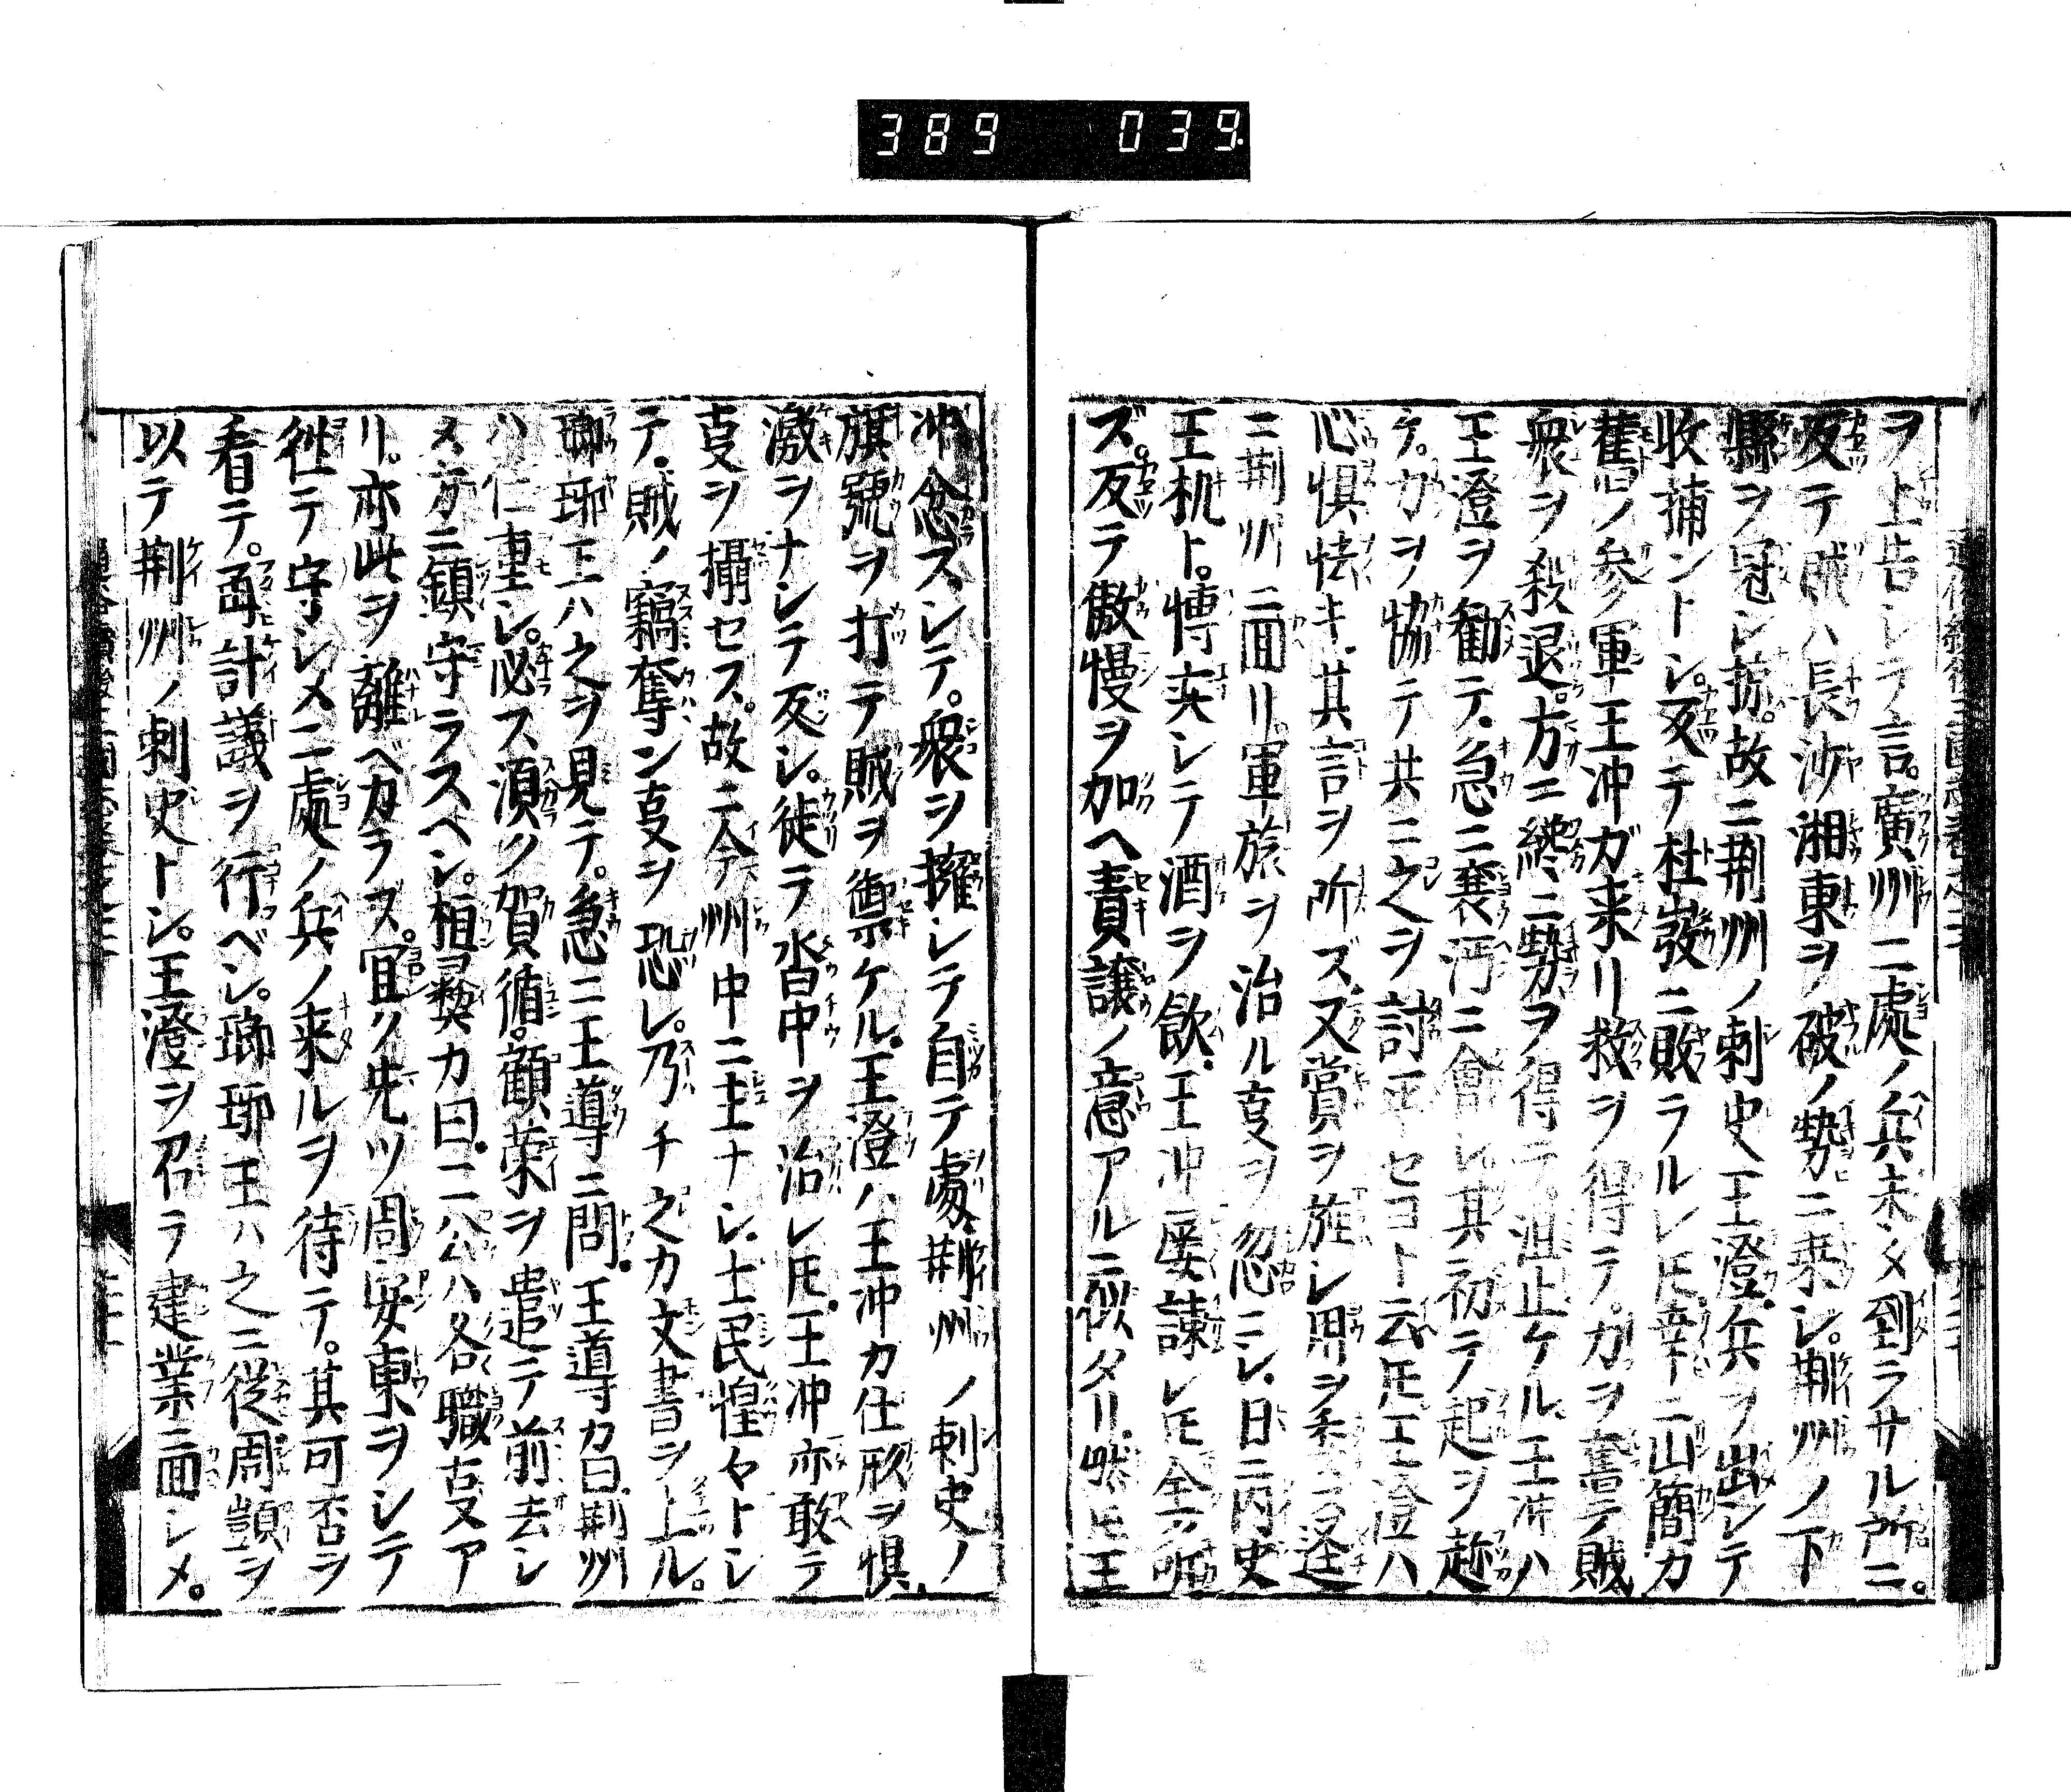 389 039
ヲ上告シテ言。廣州二處ノ兵未タ到ラサル所ニ。
反テ賊ハ長沙湘東ヲ破ノ勢ニ乗シ。荆州ノ下
縣ヲ冦シ掠。故ニ荆州ノ刺史王澄。兵ヲ出シテ
收捕ントシ。反テ杜弢ニ敗ラルレ𪜈。幸ニ山簡カ
舊ノ参軍王冲ガ来リ救ヲ得テ。力ヲ奮テ賊
衆ヲ殺退。方ニ纔ニ勢ヲ得テ。沮止ケル。王冲ハ
王澄ヲ勧テ。急ニ襄沔ニ會シ其初テ起ヲ趂
ケ。力ヲ恊テ共ニ之ヲ討平セヨト云𪜈。王澄ハ
心惧怯キ。其言ヲ所ズ。又賞ヲ施シ用ヲ
ニ荆州ニ面リ。軍旅ヲ治ル叓ヲ忽ニシ。日ニ内史
王机ト。慱奕シテ酒ヲ飲。王冲屡諌レ𪜈全ク
ズ。反テ傲慢ヲ加ヘ責譲ノ意アルニ似タリ。然𪜈王
冲念ズシテ。衆ヲ擁シテ自テ處。荆州ノ刺史ノ
旗號ヲ打テ賊ヲ禦ケル。王澄ハ王冲カ仕形ヲ惧。
激ヲナシテ反シ。徒テ沓中ヲ治レ𪜈。王冲亦敢テ
叓ヲ攝セス。故ニ今州中ニ主ナシ。士民惶々トシ
テ。賊ノ竊奪ン叓ヲ恐レ。乃チ之カ文書ヲ上ル。
瑯琊王ハ之ヲ見テ。急ニ王導ニ問。王導カ曰。荆州
ハ仁重シ。必ス須ク賀循。顧荣ヲ遣テ前去シ
メ方ニ鎮守ラスヘシ。桓彛カ曰。二公ハ各職叓ア
リ。亦此ヲ離ベカラズ。宜ク先ツ周安東ヲシテ
徃テ守シメ二處ノ兵ノ来ルヲ待テ。其可否ヲ
看テ。再計議ヲ行ベシ。瑯琊王ハ之ニ従周顗ヲ
以テ荆州ノ刺史トシ。王澄ヲ召ラ建業ニ面シメ。